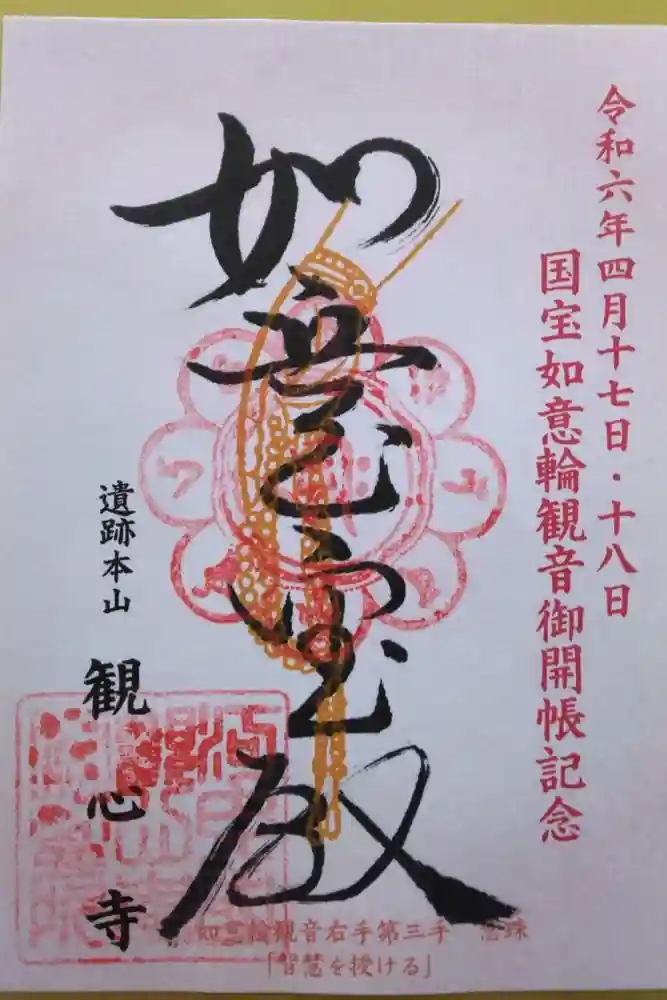 令和六年四月十七日・十八日
国宝如意輪観音御開帳記念
如意宝殿
遺跡本山
観心寺
如意輪観音右手第三手 念珠
「智慧を授ける」